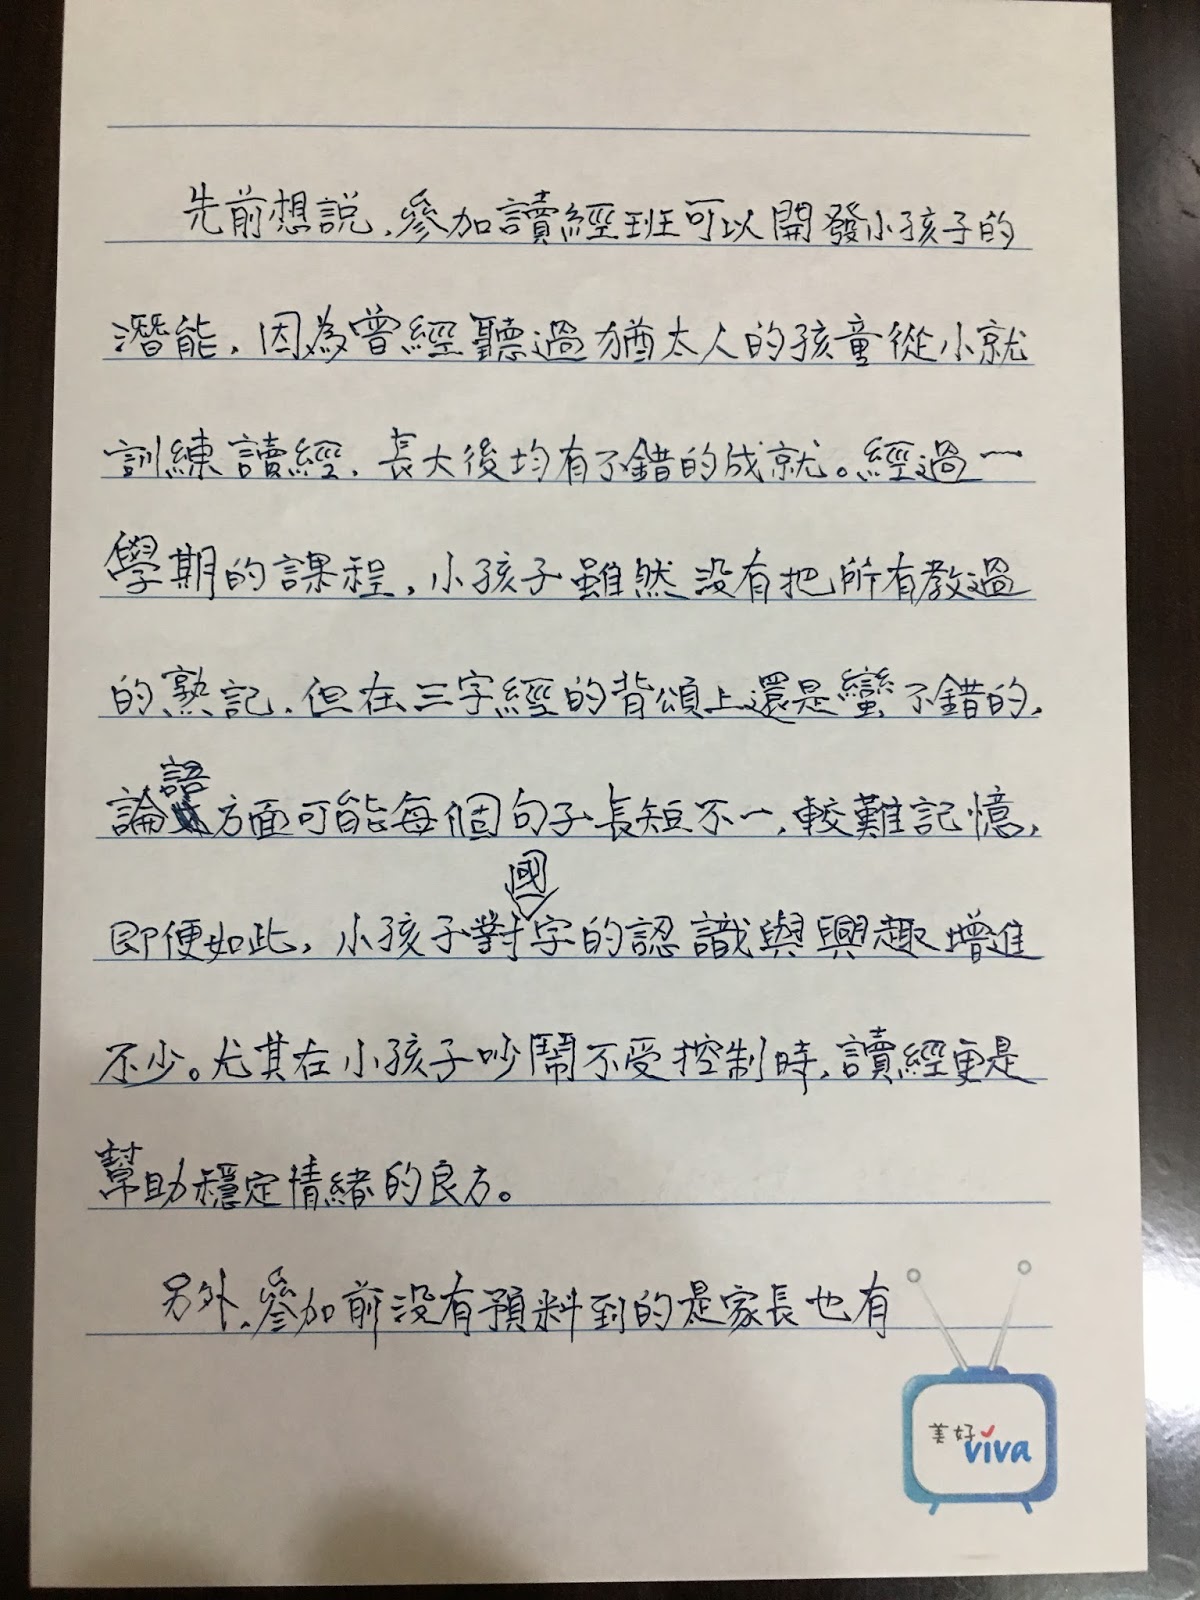 先前想說,參加讀經班可以開發小孩子的
潛能,因為曾經聽過猶太人的孩童從小就
訓練讀經,長大後均有不錯的成就。經過一
學期的課程,小孩子雖然沒有把所有教過
的熟記,但在三字經的背頌上還是蠻不錯的,
論語方面可能每個句子長短不一,較難記憶,
即便如此,小孩子對國字的認識與興趣增進
不少。尤其在小孩子吵鬧不受控制時,讀經更是
幫助穩定情緒的良方。
另外,參加前沒有預料到的是家長也有
美好
viva